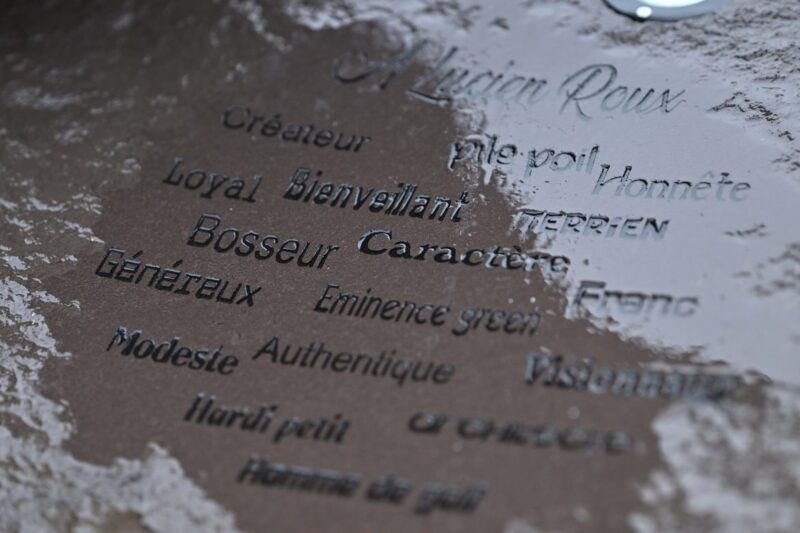 A Lucien Roux
Créateur pile poil Honnête
Loyal Bienveillant TERRIEN
Bosseur Caractère
Généreux Eminence green Franc
Modeste Authentique Visionnaire
Hardi petit
Homme de